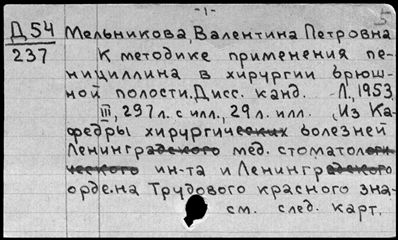 -1-
5
Д54 Мельникова, Валентина Петровна
237 К методике применения пе-
нициллина в хирургии брюш-
ной полости. Дисс. канд. Л., 1953.
III, 297 л. с илл., 29 л. илл. (Из Ка-
федры хирургических болезней
Ленинградского мед. стоматологи-
ческого ин-та и Ленинградского
ордена Трудового красного зна-
см. след. карт.